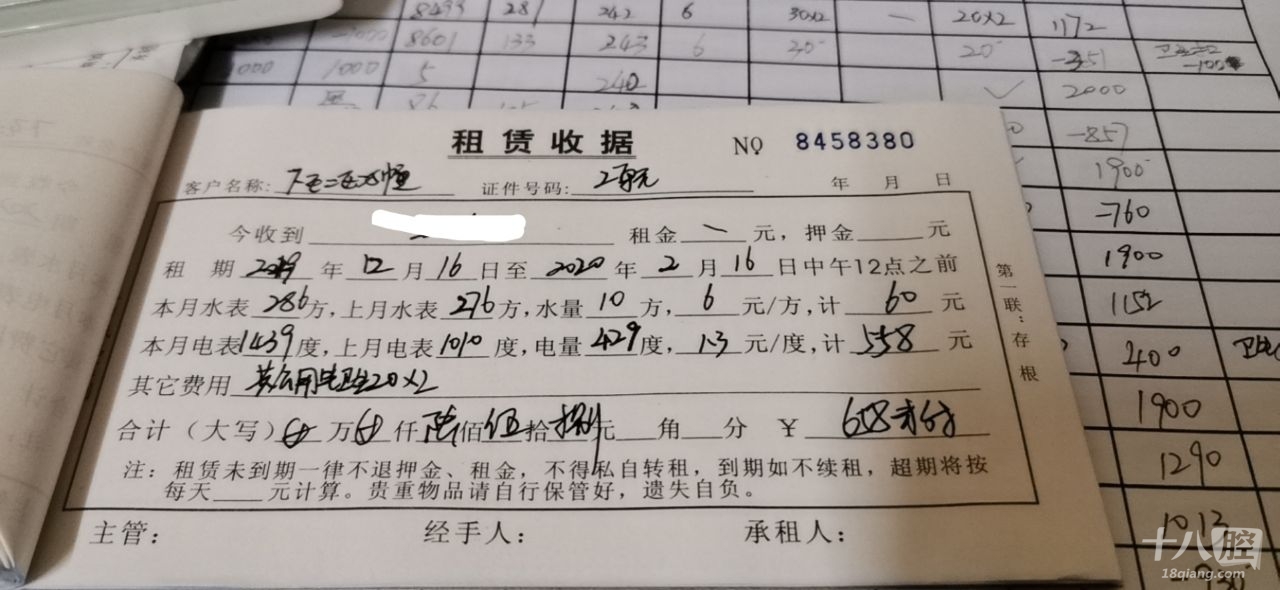 8499 281 242 6 30x2 — 20x2 1172
-1000 8601 133 243 6 30 20 -351
1000 1000 5 240 2000
-857
1900
-760
1900
1152
400
1900
1290
1013
租赁收据 NO 8458380
客户名称: 证件号码: 年 月 日
今收到 租金 一 元，押金 元
租 期 2019 年 12 月 16 日至 2020 年 2 月 16 日中午12点之前
本月水表 286 方，上月水表 276 方，水量 10 方， 6 元/方，计 60 元
本月电表 1439 度，上月电表 1010 度，电量 429 度， 1.3 元/度，计 558 元
其它费用 20x2
合计（大写） 万 仟 陆 佰 伍 拾 捌 元 角 分 ￥ 658
注：租赁未到期一律不退押金、租金，不得私自转租，到期如不续租，超期将按
每天 元计算。贵重物品请自行保管好，遗失自负。
主管： 经手人： 承租人：
第一联：存根
十八腔
18qiang.com